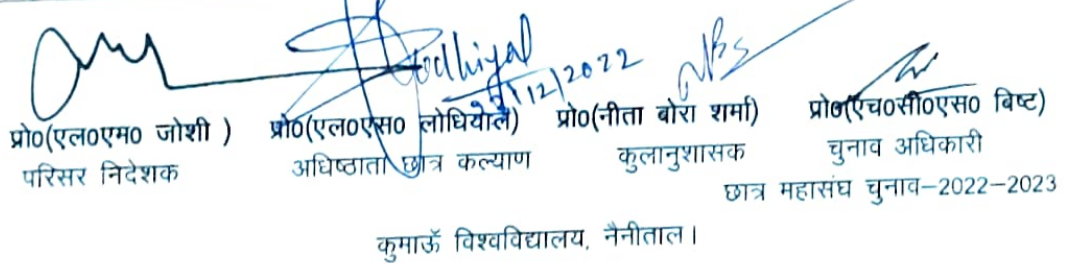 Lodhiyal
/12/2022
प्रो0(एल0एम0 जोशी ) प्रो0(एल0एस0 लोधियाल) प्रो0(नीता बोरा शर्मा) प्रो0(एच0सी0एस0 बिष्ट)
परिसर निदेशक अधिष्ठाता छात्र कल्याण कुलानुशासक चुनाव अधिकारी
छात्र महासंघ चुनाव–2022–2023
कुमाऊँ विश्वविद्यालय, नैनीताल।